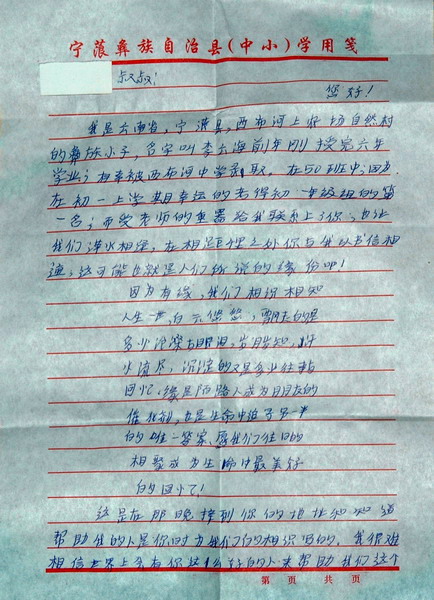 宁蒗彝族自治县(中小)学用笺
叔叔:
您好!
我是云南省,宁蒗县,西布河上
自然村
的彝族小子,名字叫李云海前年刚读完六年
学业,相幸被西布河中学录取,在50班中;因为
在初一上学期幸运的考得初一年级组的第
一名;而受老师的重器给我联系上了你,也让
我们萍水相逢,在相距
之处你与我以书信相
通,这可能也就是人们所说的缘份吧!
因为有缘,我们相识相知
人生一世,白云悠悠,
多少
泪,岁月
水流尽,沉淀的又是多少往事
回忆,缘是陌路人成为朋友的
催化剂,也是生命中
另一半
的唯一答案,愿我们往日的
相聚成为生命中最美好
的回忆!
这是在那晚接到你的
帮助我的人是你时为我们的相识写的,我很难
相信世界上会有你这么好的人来帮助我们这个
第 页 共 页